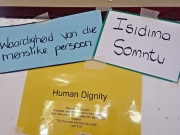 Waardigheid van die
menslike persoon
Isidima
Somntu
Human Dignity